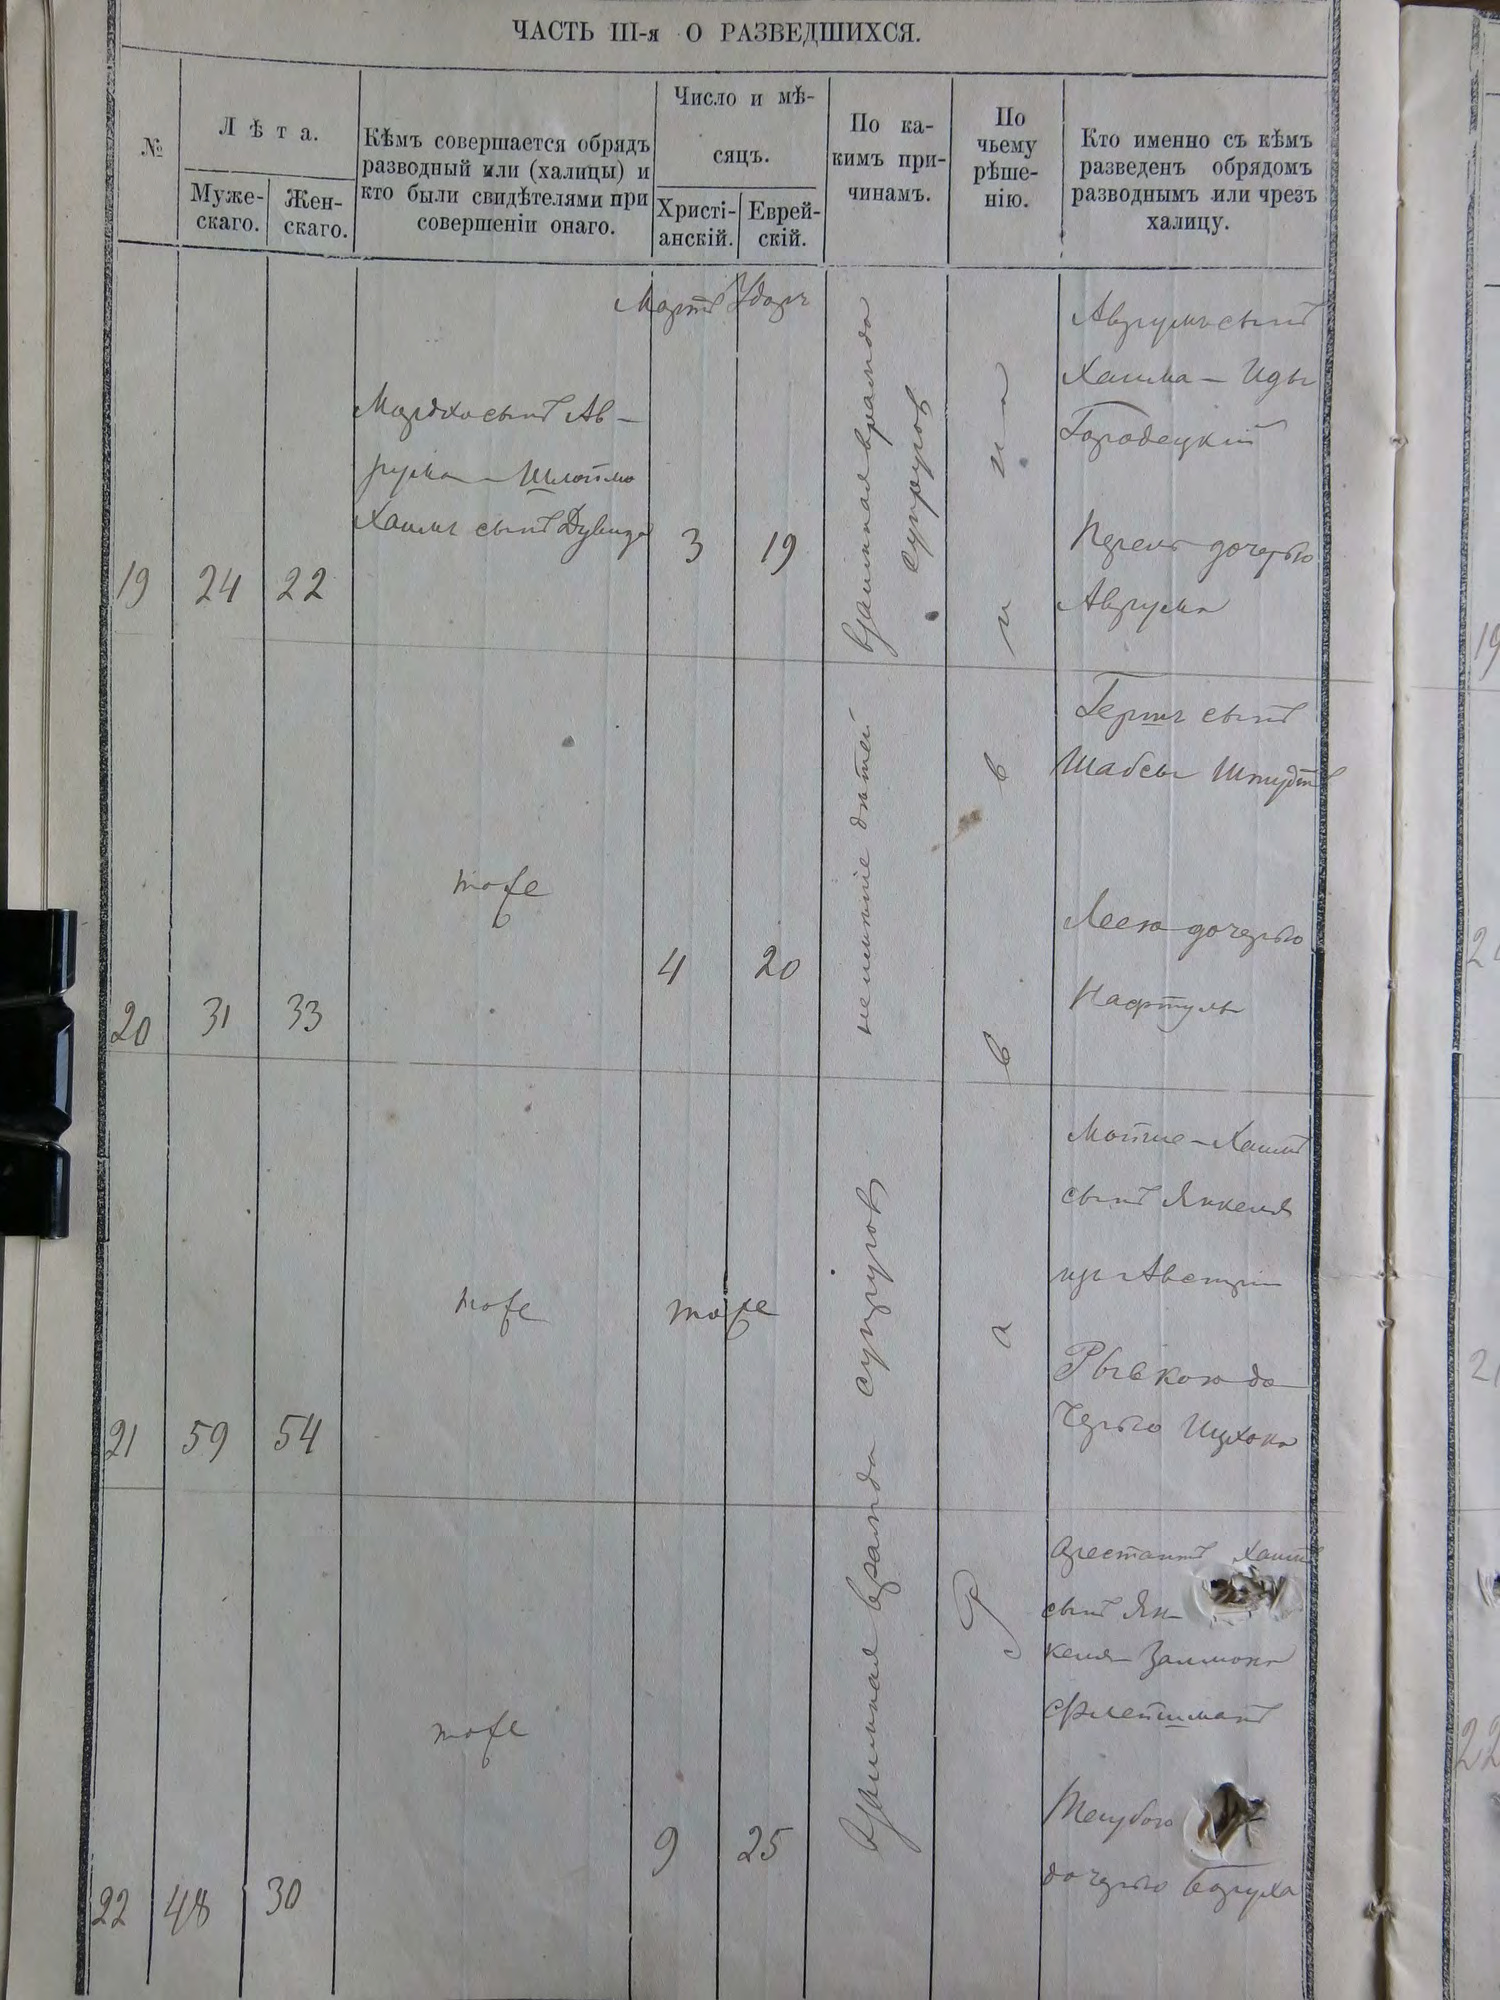 ЧАСТЬ III-я О РАЗВЕДШИХСЯ.
№
Лѣта.
Муже-
скаго.
Жен-
скаго.
Кѣмъ совершается обрядъ
разводный или (халицы) и
кто были свидѣтелями при
совершеніи онаго.
Число и мѣ-
сяцъ.
Христі-
анскій.
Еврей-
скій.
По ка-
кимъ при-
чинамъ.
По
чьему
рѣше-
нію.
Кто именно съ кѣмъ
разведенъ обрядомъ
разводнымъ или чрезъ
халицу.
19
24
22
Мордхо сынъ Ав-
рума - Шлоймо
Хаимъ сынъ Дувида
Мартъ
Адаръ
3
19
взаимная вражда
супруговъ
Аврумъ сынъ
Хаима - Иды
Городецкій
Перель дочерью
Аврума
20
31
33
тоже
4
20
неимѣніе дѣтей
Гершъ сынъ
Шабсы
Леею дочерью
Нафтулы
21
59
54
тоже
тоже
супруговъ
Мойше-Хаимъ
сынъ Янкеля
изъ Австріи
Рывкою до-
черью Ицхока
22
48
30
тоже
9
25
Взаимная вражда
Р
а
в
в
и
н
а
арестантъ Хаимъ
сынъ Ян-
келя Залмона
Флейшманъ
дочерью Боруха